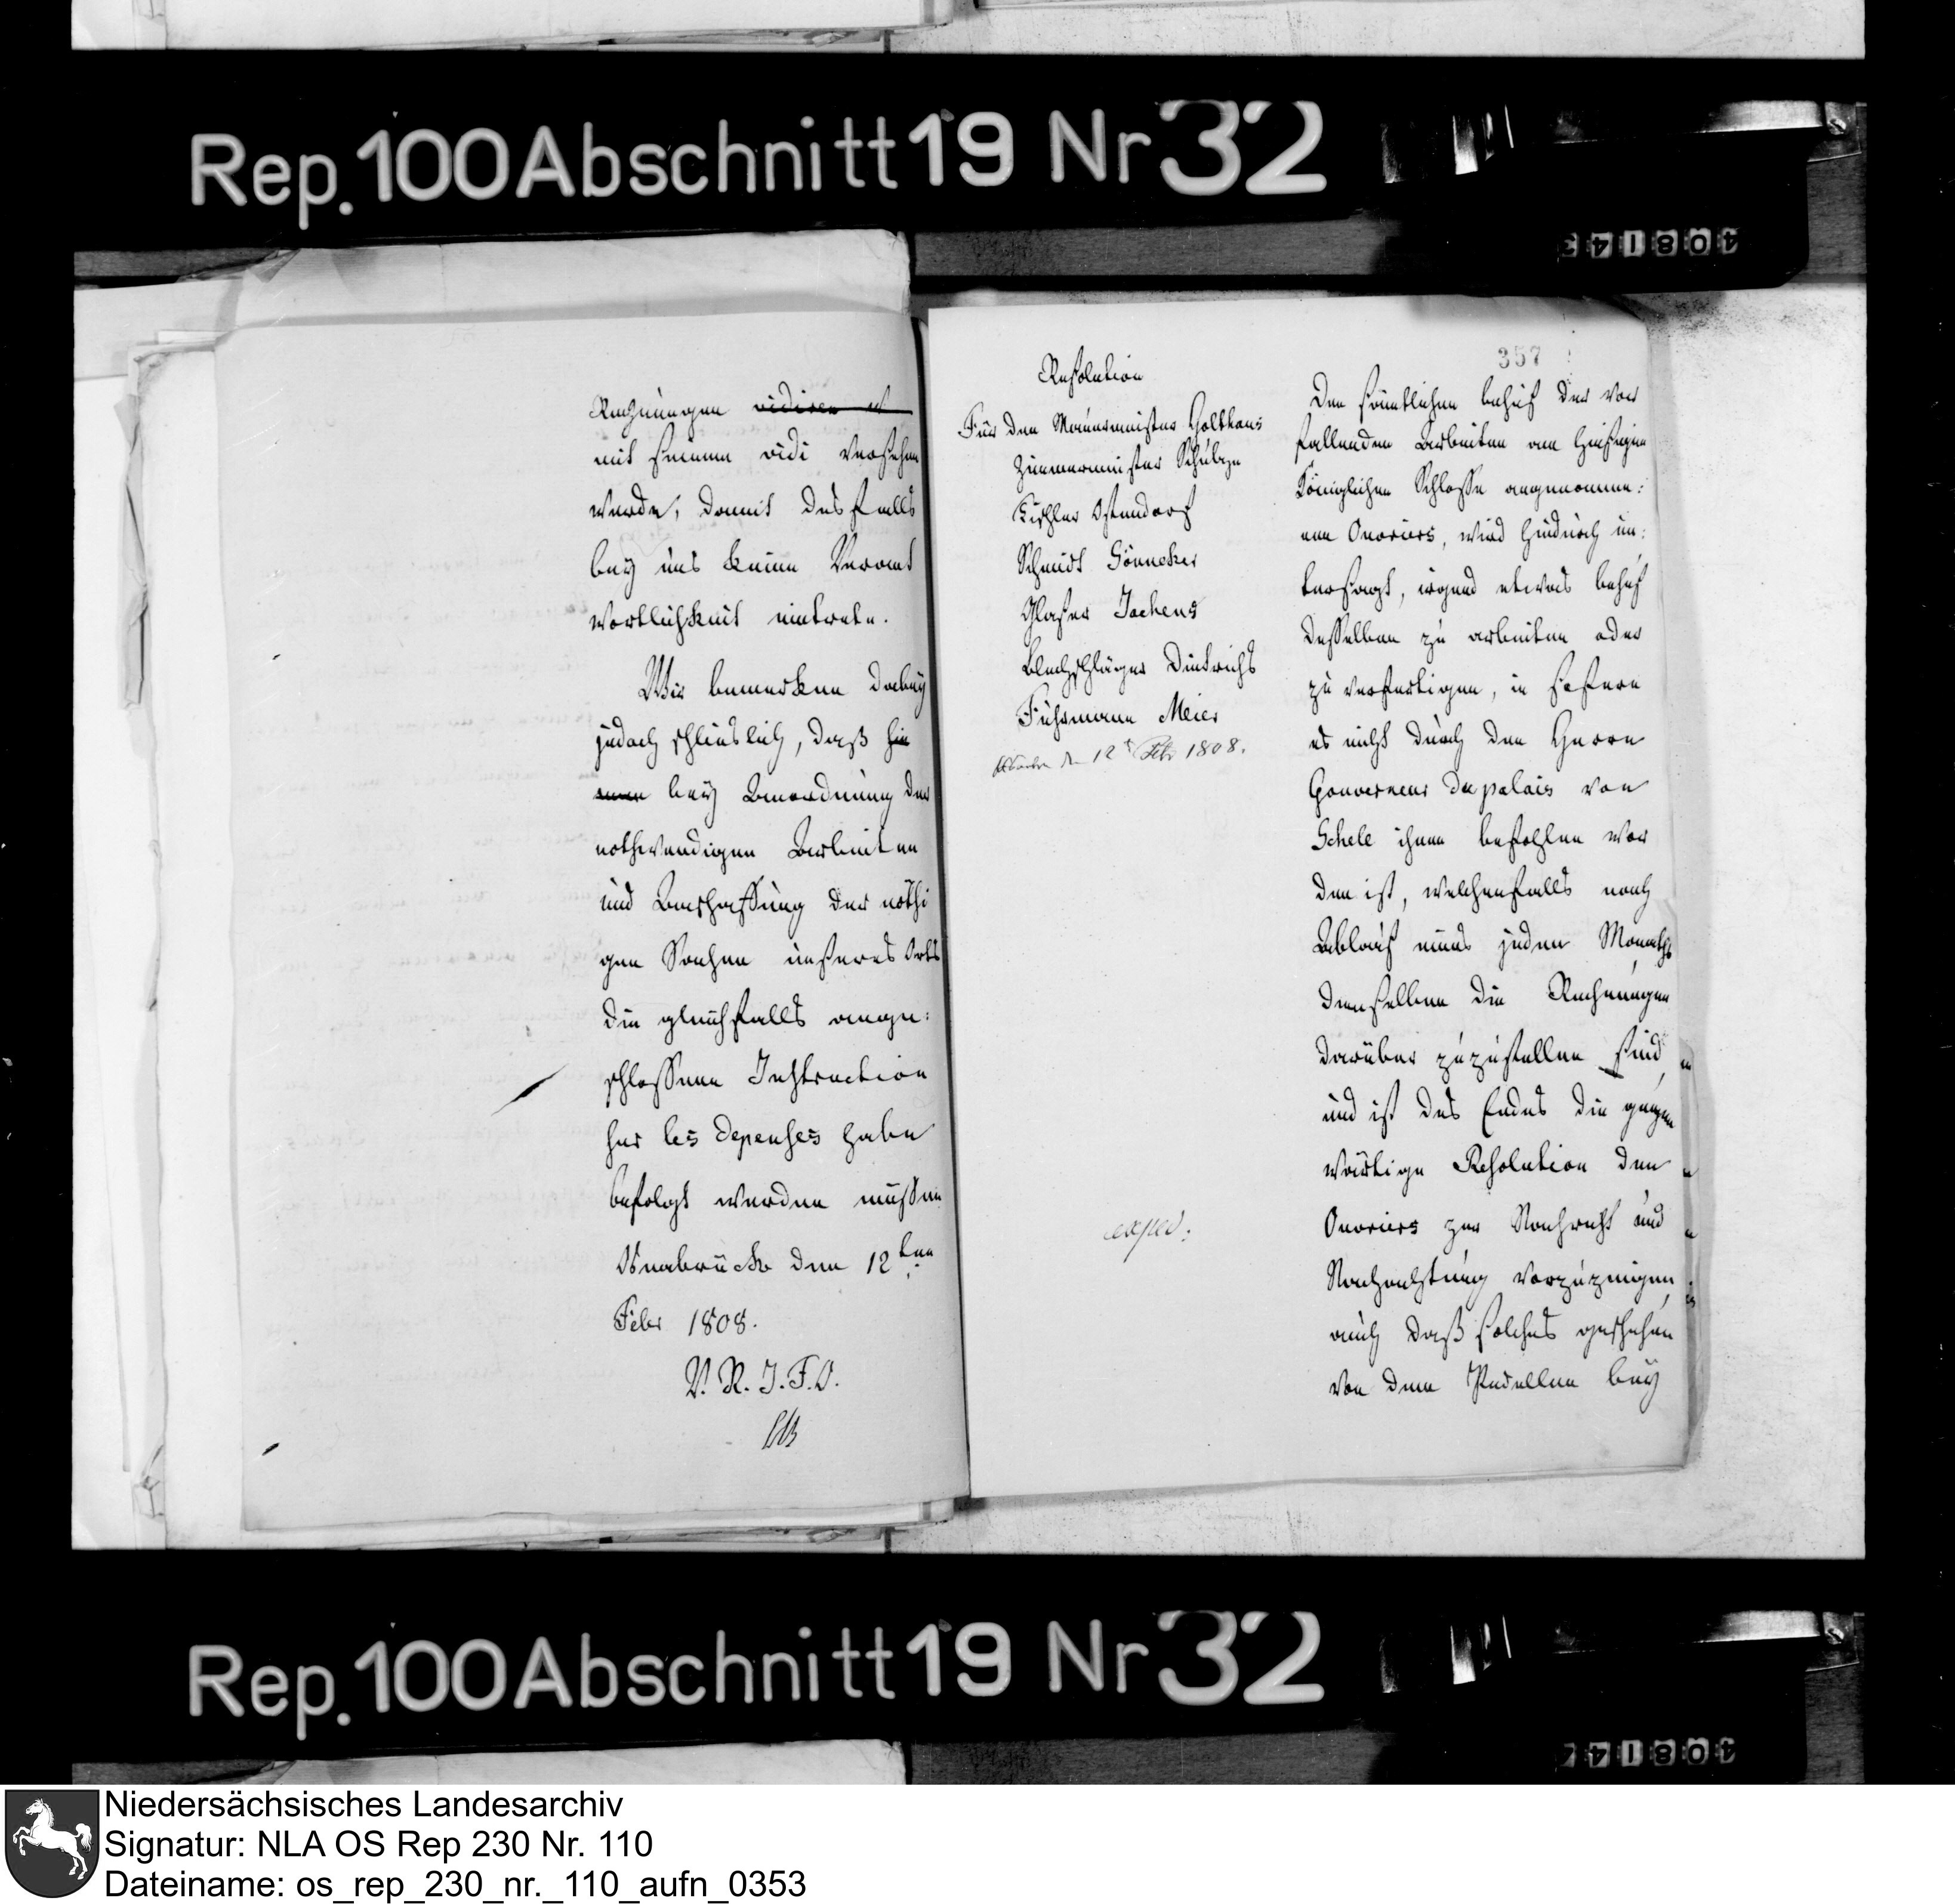 Rep. 100 Abschnitt 19 Nr 32
408143
Rechnungen vidiren et
mit seinem vidi versehen
werde, damit desfalls
bey uns keine Verant
wortlichkeit eintrete.
Wir bemerken dabey
jedoch schlieslich, daß hie
bey Beordnung der
nothwendigen Arbeiten
und Anschaffung der nöthi
gen Sachen unseres Orts
die gleichfalls ange:
schlossene Instruction
sur les depenses habe
befolgt werden müssen
Osnabrück den 12ten
Febr 1808.
V. R. J. F. O.
357
Resolution
Für den Mauermeister Holthaus
Zimmermeister Schulze
Tischler Ostendorf
Schmidt Gönneker
Glaser Jochens
Blechschläger Dietrichs
Fuhrmann Meier
den 12t Febr 1808.
exped:
Den sämtlichen behuf der vor
fallenden Arbeiten am hiesigen
Königlichen Schlosse angenomme:
nen Ouvriers, wird hiedurch un:
tersagt, irgend etwas behuf
desselben zu arbeiten oder
zu verfertigen, in sofern
es nicht durch den Herrn
Gouverneur du palais von
Schele ihnen befohlen wor
den ist, welchenfalls nach
Ablauf eines jeden Monaths
demselben die Rechnungen
darüber zuzustellen sind,
und ist des Endes die gegen
wärtige Resolution den
Ouvriers zur Nachricht und
Nachachtung vorzuzeigen,
auch daß solches geschehen
von dem Pedellen bey
Rep. 100 Abschnitt 19 Nr 32
Niedersächsisches Landesarchiv
Signatur: NLA OS Rep 230 Nr. 110
Dateiname: os_rep_230_nr._110_aufn_0353